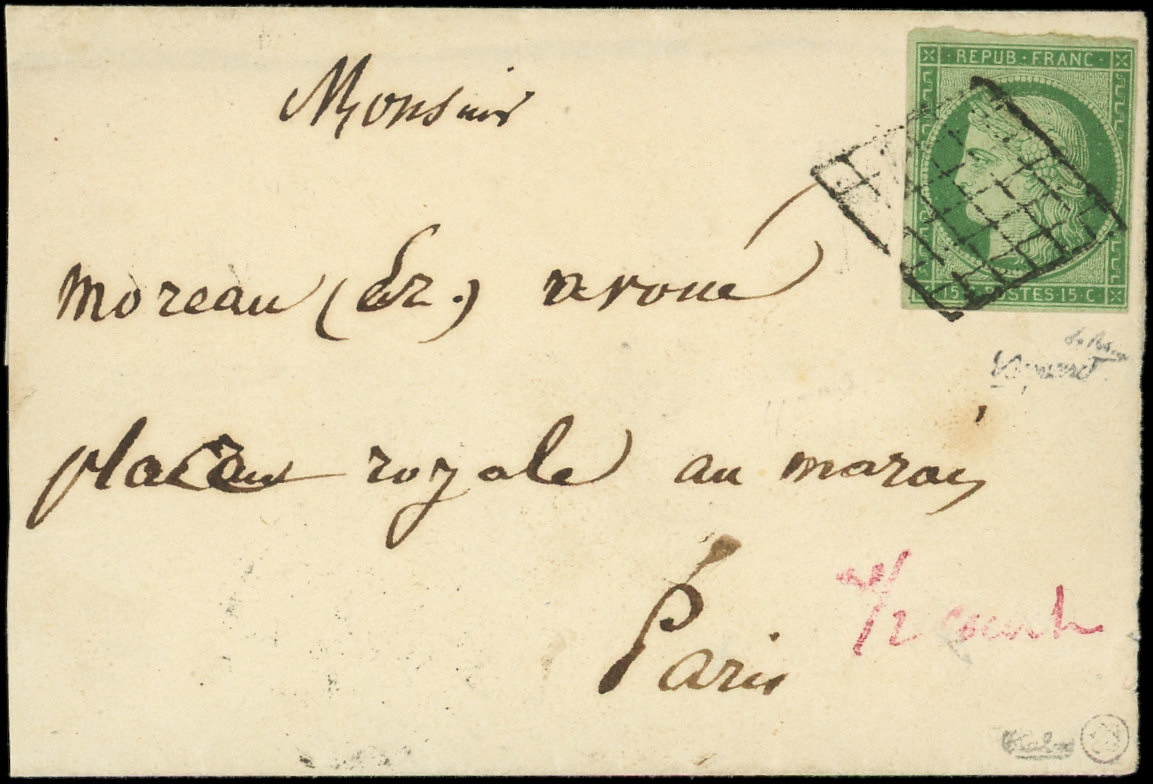 REPUB·FRANC·
Monsieur
15 C POSTES 15 C
moreau (Er.) avoué
place royale au marais
Paris
1/2